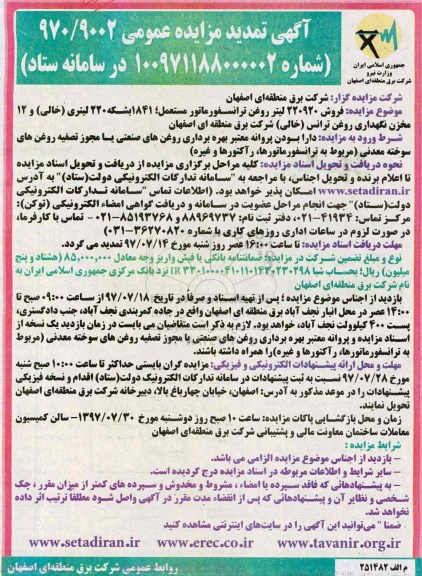 آگهی تمدید مزایده عمومی ۹۷۰/۹۰۰۲
(شماره ۱۰۰۹۷۱۱۸۸۰۰۰۰۰۲ در سامانه ستاد)
جمهوری اسلامی ایران
وزارت نیرو
شرکت برق منطقه‌ای اصفهان
شرکت مزایده گزار: شرکت برق منطقه‌ای اصفهان
موضوع مزایده: فروش ۲۲۰۹۲۰ لیتر روغن ترانسفورماتور مستعمل؛ ۱۸۴۱بشکه ۲۲۰ لیتری (خالی) و ۱۲
مخزن نگهداری روغن ترانس (خالی) شرکت برق منطقه ای اصفهان
شرط ورود به مزایده: دارا بودن پروانه معتبر بهره برداری روغن های صنعتی یـا مجوز تصفیه روغن های
سوخته معدنی (مربوط به ترانسفورماتورها، رآکتورها و غیره)
نحوه دریافت و تحویل اسناد مزایده: کلیه مراحل برگزاری مزایده از دریافت و تحویل اسناد مزایده
تا اعلام برنده و تحویل اجناس، با مراجعه به "سـامانه تدارکات الکترونیکی دولت(ستاد)" به آدرس
www.setadiran.ir امکان پذیر خواهد بود. (اطلاعات تماس "سـامانه تـدارکات الکترونیکی
دولت(ستاد)" جهت انجام مراحل عضویت در سامانه و دریافت گواهی امضاء الکترونیکی (توکن):
مرکز تماس: ۴۱۹۳۴-۰۲۱، دفتر ثبت نام: ۸۸۹۶۹۷۳۷ و ۸۵۱۹۳۷۶۸-۰۲۱ - تماس با کارفرما،
در صورت لزوم در ساعات اداری روزهای کاری با شماره ۳۶۲۷۰۸۲۰-۰۳۱)
مهلت دریافت اسناد مزایده: تا ساعت ۱۶:۰۰ عصر روز شنبه مورخ ۹۷/۰۷/۱۴ تمدید می گردد.
نوع و مبلغ تضمین شـرکت در مزایده: ضمانتنامه بانکی یا فیش واریز وجه معادل ۸۵,۰۰۰,۰۰۰ (هشتاد و پنج
میلیون) ریال؛ بحساب شبا IR نزد بانک مرکزی جمهوری اسلامی ایران به
نام شرکت برق منطقه‌ای اصفهان
بازدید از اجناس موضوع مزایده : پس از تهیه اسـناد و صرفاً در تاریخ ۹۷/۰۷/۱۸ از سـاعت ۰۹:۰۰ صبح تا
۱۴:۰۰ عصر در محل انبار نجف آباد برق منطقه ای اصفهان واقع در جاده کمربندی نجف آباد، جنب دادگستری،
پست ۴۰۰ کیلوولت نجف آباد، خواهد بود. لازم به ذکر است متقاضیان می بایست در زمان بازدید یک نسخه از
اسـناده مزایده و پروانه معتبر بهره برداری روغن های صنعتی یا مجوز تصفیه روغن های سوخته معدنی (مربوط
به ترانسفورماتورها، رآکتورها و غیره) را همراه داشته باشند.
مهلت و محل ارائه پیشـنهادات الکترونیکی و فیزیکی: مزایده گران بایستی حداکثر تا ساعت ۱۰:۰۰ صبح شنبه
مورخ ۹۷/۰۷/۲۸ نسبت به ثبت پیشنهادات در سامانه تدارکات الکترونیک دولت(ستاد) اقدام و نسخه فیزیکی
پیشنهادات را در موعد مذکور به آدرس: اصفهان، خیابان چهارباغ بالا، دبیرخانه شرکت برق منطقه‌ای اصفهان
تحویل نمایند.
زمان و محل بازگشایی پاکات مزایده: ساعت ۱۰ صبح روز دوشنبه مورخ ۱۳۹۷/۰۷/۳۰- سالن کمیسیون
معاملات ساختمان معاونت مالی و پشتیبانی شرکت برق منطقه‌ای اصفهان
شرایط مزایده :
– بازدید از اجناس موضوع مزایده الزامی می باشد.
– سایر شرایط و اطلاعات مربوطه در اسناد مزایده درج گردیده است.
– به پیشنهادهائی که فاقد سـپرده یا امضاء ، مشروط و مخدوش و سـپرده های کمتر از میزان مقرر ، چک
شخصی و نظایر آن و پیشنهادهائی که پس از انقضاء مدت مقرر در آگهی واصل شود مطلقاً ترتیب اثر داده
نخواهد شد.
ضمنا "می‌توانید این آگهی را در سایت‌های اینترنتی مشاهده کنید
www.setadiran.ir www.erec.co.ir www.tavanir.org.ir
روابط عمومی شرکت برق منطقه‌ای اصفهان
م الف ۲۵۱۴۸۲